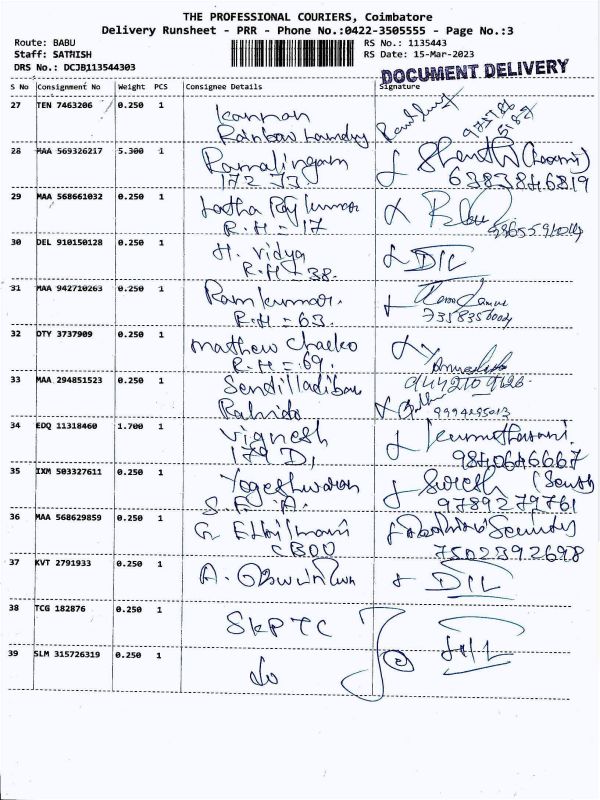 THE PROFESSIONAL COURIERS, Coimbatore
Delivery Runsheet - PRR - Phone No.:0422-3505555 - Page No.:3
Route: BABU
Staff: SATHISH
DRS No.: DCJB113544303
RS No.: 1135443
RS Date: 15-Mar-2023
DOCUMENT DELIVERY
S No Consignment No Weight PCS Consignee Details Signature
27 TEN 7463206 0.250 1 Kannan
Rainbow Laundry
28 MAA 569326217 5.300 1 Ramalingam
172 73
6383846819
29 MAA 568661032 0.250 1 Latha Raj Kumar
R.H = 17
30 DEL 910150128 0.250 1 H. Vidya
R.H - 38.
31 MAA 942710263 0.250 1 Ramkumar.
R.H = 63.
32 DTY 3737909 0.250 1 Mathew Chacko
R.H = 69.
33 MAA 294851523 0.250 1
9994295013
34 EDQ 11318460 1.700 1 Vignesh
179 D,
9840646667
35 IXM 503327611 0.250 1 Yogeshwaran Suresh
S.F.A. 9789279761
36 MAA 568629859 0.250 1 Security
CBOO 7502392698
37 KVT 2791933 0.250 1
38 TCG 182876 0.250 1 SKPTC
39 SLM 315726319 0.250 1 Do